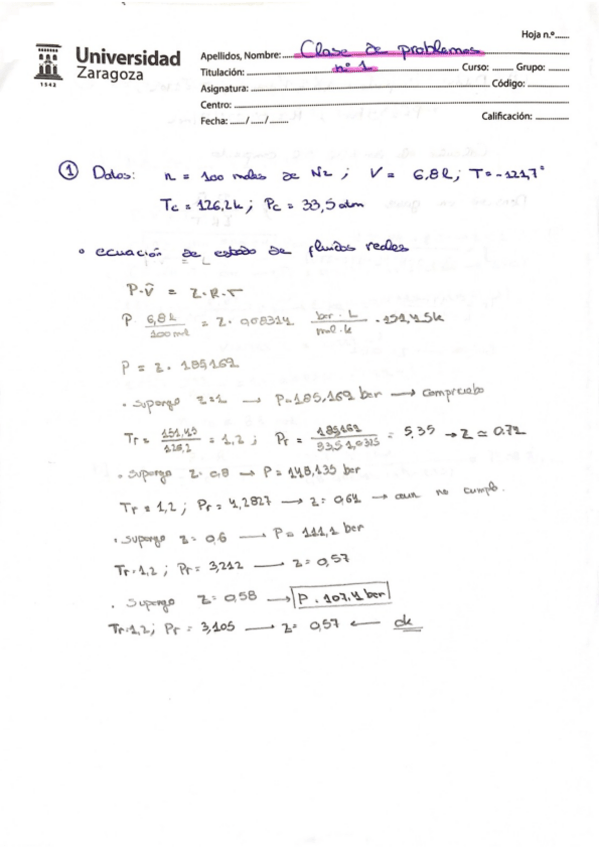 Hoja n.º......
Universidad
Zaragoza
1542
Apellidos, Nombre: Clase de problemas
Titulación: nº 1 Curso: ...... Grupo: ......
Asignatura: Código: ......
Centro:
Fecha: ...../...../....... Calificación: ......
① Datos: n = 100 moles de N2 ; V = 6,8 l ; T = -121,7°
Tc = 126,2 k ; Pc = 33,5 atm
• ecuación de estado de fluidos reales
P·V̂ = Z·R·T
P 6,8 l / 100 mol = Z · 0'08314 bar·L / mol·k · 151,45k
P = Z · 185,162
• Supongo Z=1 → P=185,162 bar → compruebo
Tr = 151,45 / 126,2 = 1,2 ; Pr = 185,162 / 33,5·1,01325 = 5,35 → Z ≃ 0.72
• Supongo Z=0,8 → P = 148,135 bar
Tr = 1,2 ; Pr = 4,2827 → Z = 0,64 → aun no cumple.
• Supongo Z = 0,6 → P = 111,1 bar
Tr=1,2 ; Pr = 3,212 → Z = 0,57
• Supongo Z = 0,58 → P = 107,4 bar
Tr=1,2 ; Pr = 3,105 → Z = 0,57 ← ok